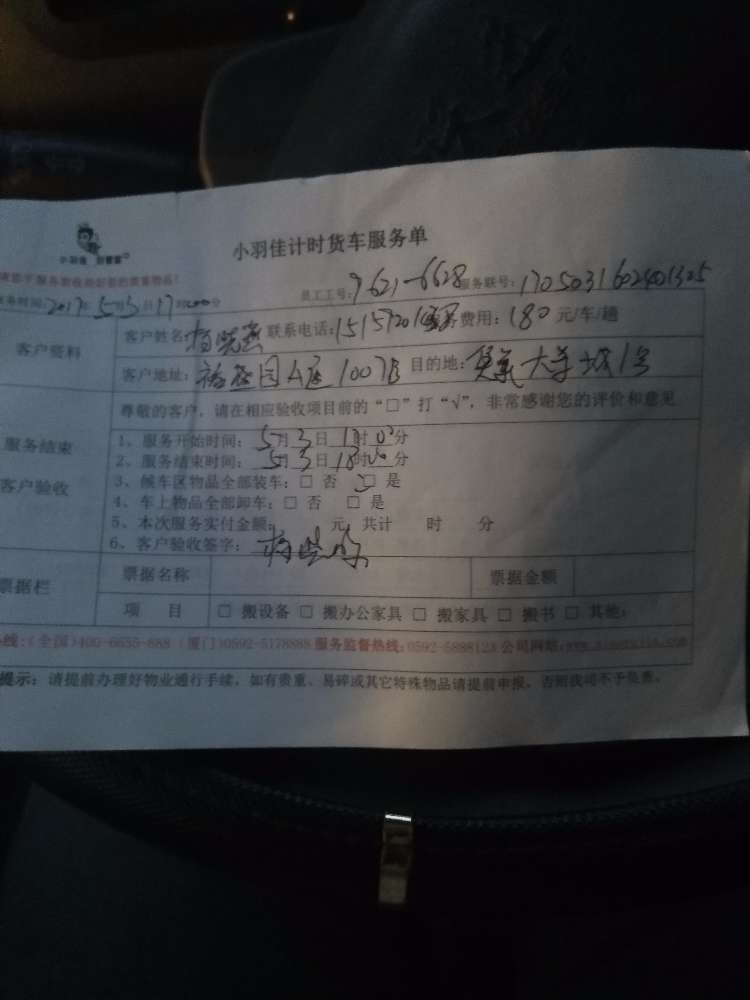 小羽佳计时货车服务单
小羽佳
员工工号:7621-6628 服务联号:1705031602401325
务时间:2017年5月3日17时00分
客户资料
客户姓名: 联系电话:1515920 服务费用:180元/车/趟
客户地址: 园A座1007B 目的地: 大学城1号
尊敬的客户,请在相应验收项目前的“□”打“√”,非常感谢您的评价和意见
服务结束
客户验收
1、服务开始时间:5月3日17时00分
2、服务结束时间:5月3日18时00分
3、候车区物品全部装车:□ 否 □ 是
4、车上物品全部卸车:□ 否 □ 是
5、本次服务实付金额: 元 共计 时 分
6、客户验收签字:
票据栏
票据名称 票据金额
项 目 □ 搬设备 □ 搬办公家具 □ 搬家具 □ 搬书 □ 其他:
线:(全国)400-6635-888 (厦门)0592-5178888 服务监督热线:0592-5888123 公司网站:
提示:请提前办理好物业通行手续,如有贵重、易碎或其它特殊物品请提前申报,否则我司不予负责。